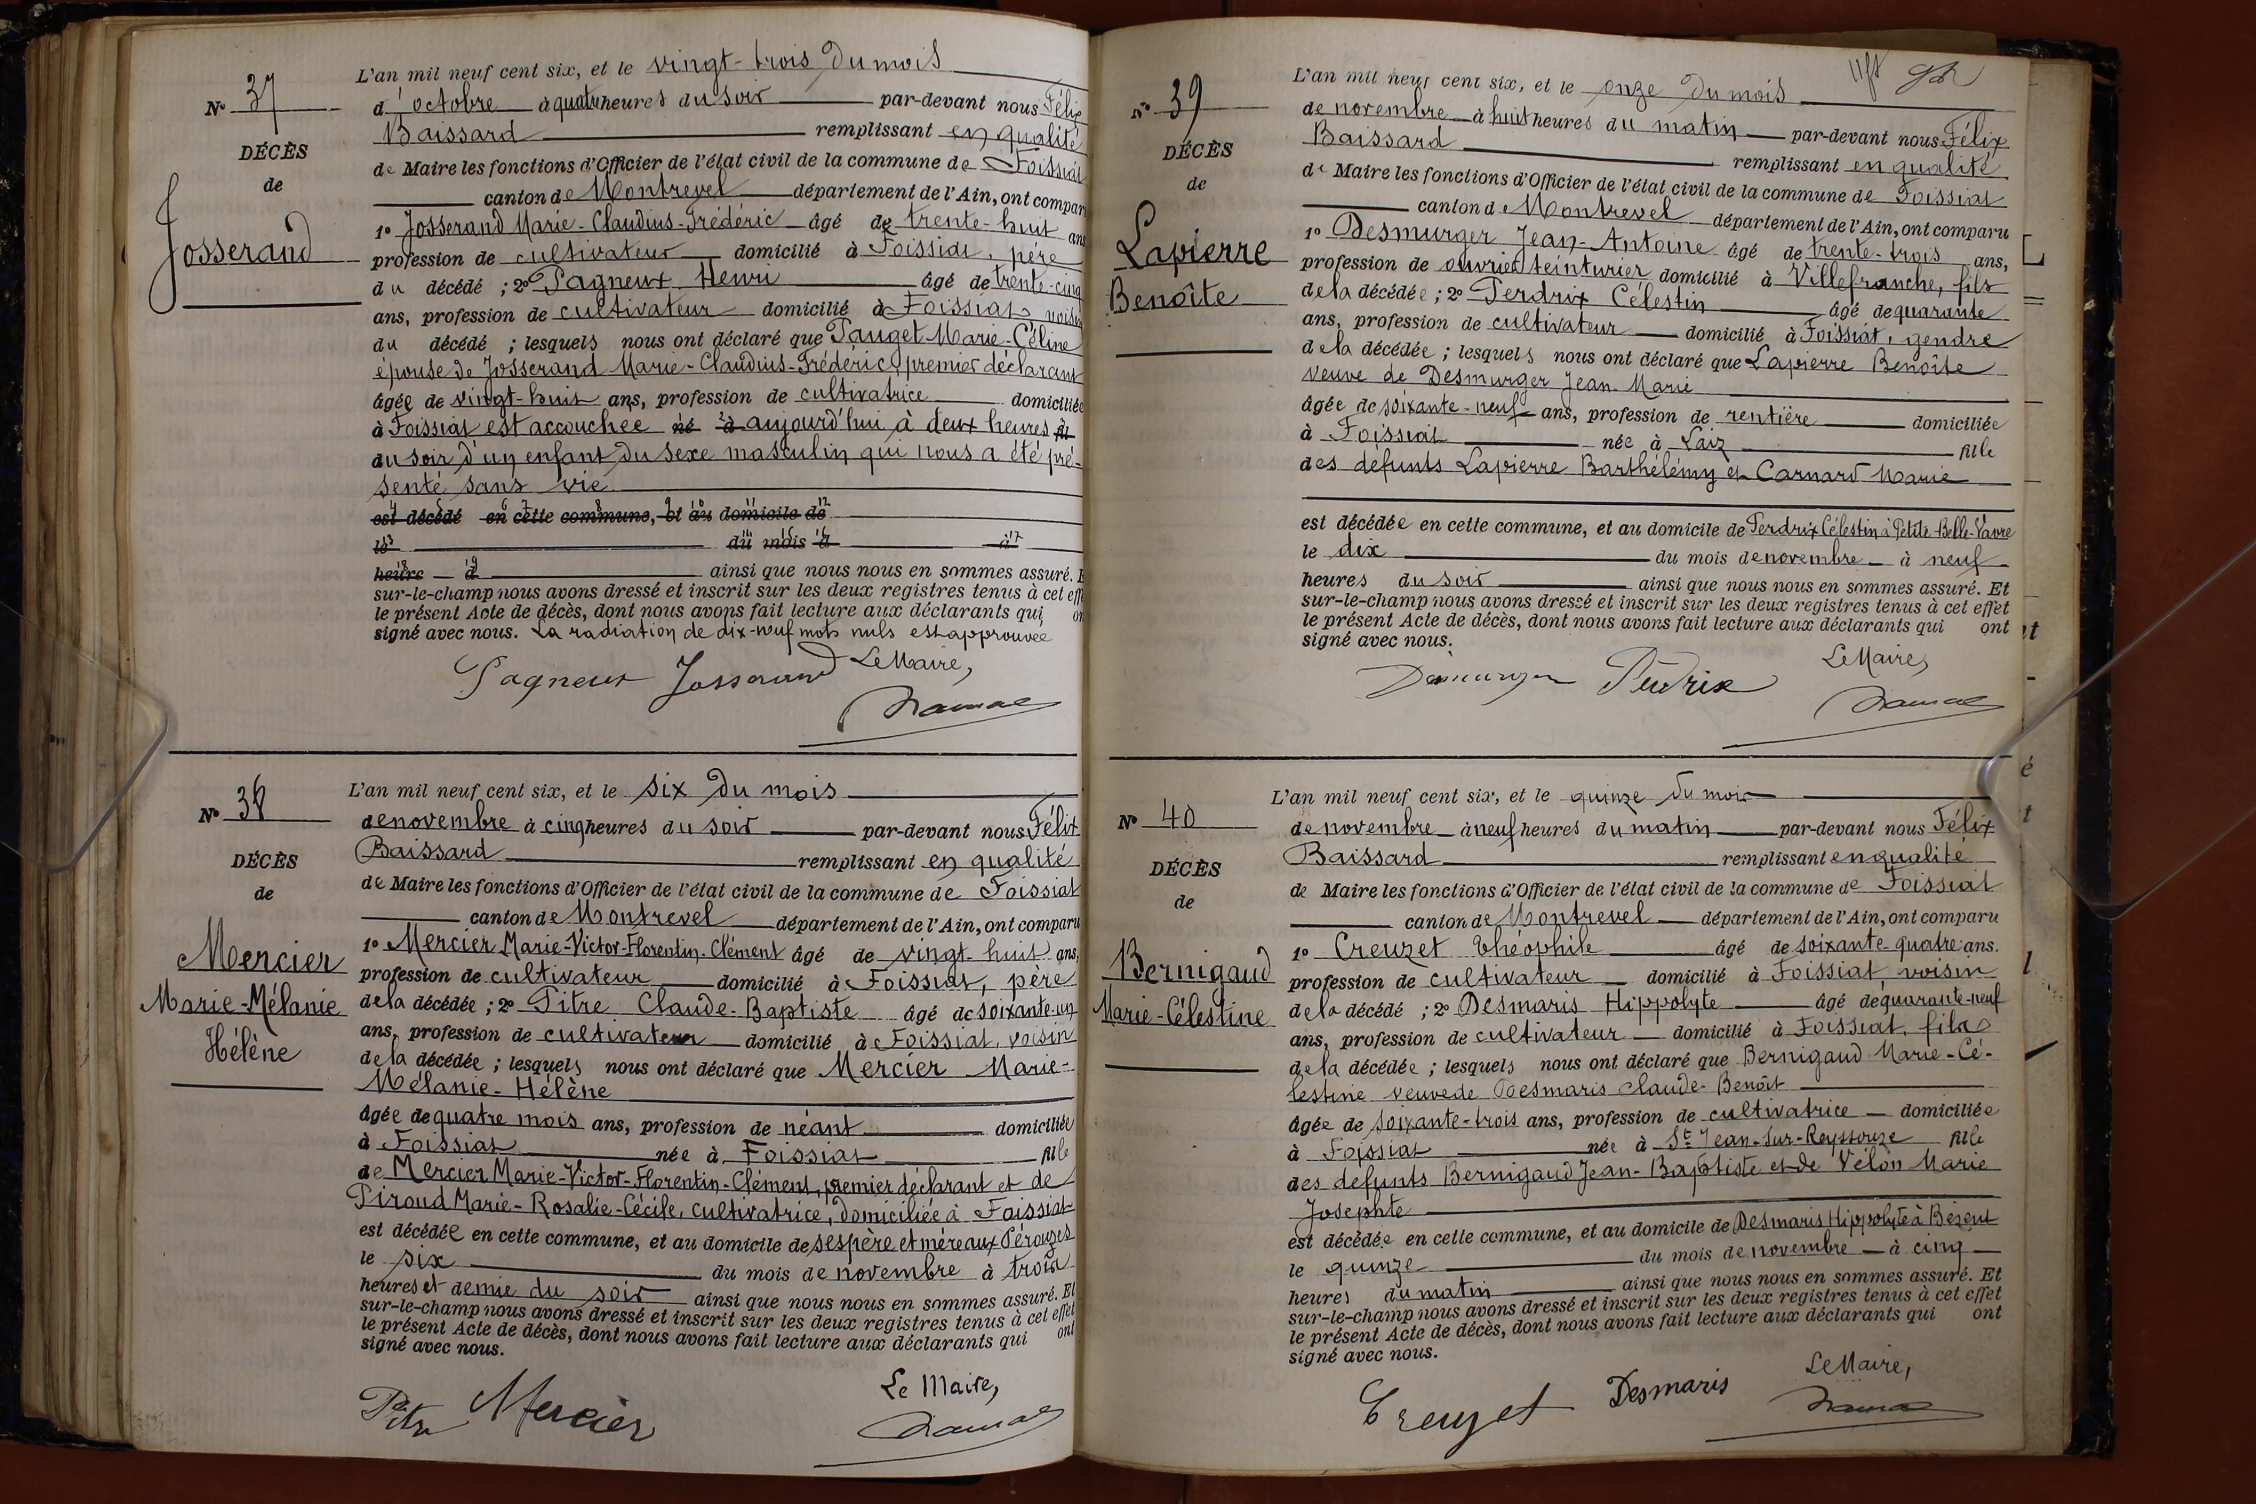 No 37
DÉCÈS
de
Josserand
L'an mil neuf cent six, et le vingt-trois du mois
d'octobre à quatre heures du soir par-devant nous Félix
Baissard remplissant en qualité
de Maire les fonctions d'Officier de l'état civil de la commune de Foissiat
canton de Montrevel département de l'Ain, ont compar
1o Josserand Marie-Claudius-Frédéric âgé de trente-huit ans
profession de cultivateur domicilié à Foissiat, père
du décédé ; 2o Pagneux Henri âgé de trente-cinq
ans, profession de cultivateur domicilié à Foissiat voisin
du décédé ; lesquels nous ont déclaré que Pauget Marie-Céline
épouse de Josserand Marie-Claudius-Frédéric, premier déclarant
âgée de vingt-huit ans, profession de cultivatrice domiciliée
à Foissiat est accouchée né à aujourd'hui à deux heures fil
du soir d'un enfant du sexe masculin qui nous a été pré-
senté sans vie
est décédé en cette commune, et au domicile de
le du mois d à
heure d ainsi que nous nous en sommes assuré. E
sur-le-champ nous avons dressé et inscrit sur les deux registres tenus à cet eff
le présent Acte de décès, dont nous avons fait lecture aux déclarants qui on
signé avec nous. La radiation de dix-neuf mots nuls est approuvée
Le Maire,
Pagneux Josserand
No 38
DÉCÈS
de
Mercier
Marie-Mélanie
Hélène
L'an mil neuf cent six, et le six du mois
de novembre à cinq heures du soir par-devant nous Félix
Baissard remplissant en qualité
de Maire les fonctions d'Officier de l'état civil de la commune de Foissiat
canton de Montrevel département de l'Ain, ont comparu
1o Mercier Marie-Victor-Florentin-Clément âgé de vingt-huit ans,
profession de cultivateur domicilié à Foissiat, père
de la décédée ; 2o Pitre Claude-Baptiste âgé de soixante-un
ans, profession de cultivateur domicilié à Foissiat, voisin
de la décédée ; lesquels nous ont déclaré que Mercier Marie-
Mélanie-Hélène
âgée de quatre mois ans, profession de néant domiciliée
à Foissiat née à Foissiat fille
de Mercier Marie-Victor-Florentin-Clément, premier déclarant et de
Piroud Marie-Rosalie-Cécile, cultivatrice, domiciliée à Foissiat
est décédée en cette commune, et au domicile de ses père et mère aux Pérouzes
le six du mois de novembre à trois
heures et demie du soir ainsi que nous nous en sommes assuré. Et
sur-le-champ nous avons dressé et inscrit sur les deux registres tenus à cet effet
le présent Acte de décès, dont nous avons fait lecture aux déclarants qui ont
signé avec nous.
Le Maire,
Pitre Mercier
No 39
DÉCÈS
de
Lapierre
Benoîte
L'an mil neuf cent six, et le onze du mois
de novembre à huit heures du matin par-devant nous Félix
Baissard remplissant en qualité
de Maire les fonctions d'Officier de l'état civil de la commune de Foissiat
canton de Montrevel département de l'Ain, ont comparu
1o Desmurger Jean-Antoine âgé de trente-trois ans,
profession de ouvrier teinturier domicilié à Villefranche, fils
de la décédée ; 2o Perdrix Célestin âgé de quarante
ans, profession de cultivateur domicilié à Foissiat, gendre
de la décédée ; lesquels nous ont déclaré que Lapierre Benoîte
veuve de Desmurger Jean Marie
âgée de soixante-neuf ans, profession de rentière domiciliée
à Foissiat née à Laiz fille
des défunts Lapierre Barthélémy et Carnard Marie
est décédée en cette commune, et au domicile de Perdrix Célestin à Petite-Belle-Vavre
le dix du mois de novembre à neuf
heures du soir ainsi que nous nous en sommes assuré. Et
sur-le-champ nous avons dressé et inscrit sur les deux registres tenus à cet effet
le présent Acte de décès, dont nous avons fait lecture aux déclarants qui ont
signé avec nous.
Le Maire,
Desmurger Perdrix
No 40
DÉCÈS
de
Bernigaud
Marie-Célestine
L'an mil neuf cent six, et le quinze du mois
de novembre à neuf heures du matin par-devant nous Félix
Baissard remplissant en qualité
de Maire les fonctions d'Officier de l'état civil de la commune de Foissiat
canton de Montrevel département de l'Ain, ont comparu
1o Creuzet Théophile âgé de soixante-quatre ans.
profession de cultivateur domicilié à Foissiat voisin
de la décédé ; 2o Desmaris Hippolyte âgé de quarante-neuf
ans, profession de cultivateur domicilié à Foissiat, fils
de la décédée ; lesquels nous ont déclaré que Bernigaud Marie-Cé-
lestine veuve de Desmaris Claude-Benoît
âgée de soixante-trois ans, profession de cultivatrice domiciliée
à Foissiat née à St Jean-sur-Reyssouze fille
des défunts Bernigaud Jean-Baptiste et de Vélon Marie
Josephte
est décédée en cette commune, et au domicile de Desmaris Hippolyte à Bézent
le quinze du mois de novembre à cinq
heures du matin ainsi que nous nous en sommes assuré. Et
sur-le-champ nous avons dressé et inscrit sur les deux registres tenus à cet effet
le présent Acte de décès, dont nous avons fait lecture aux déclarants qui ont
signé avec nous.
Le Maire,
Creuzet Desmaris